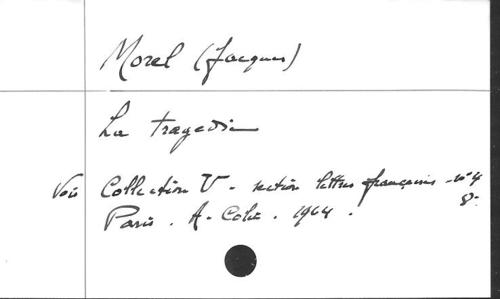 Morel (Jacques)
La tragedie
Voir Collection U - section lettres françaises - n° 4
Paris. A. Colin. 1964. 8°